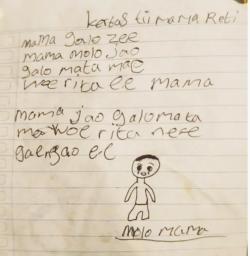 kertas lii mama Reti
mama galo zee
mama molo jao
galo mata mae
woe rita ee mama
mama jao galo mata
mae woe rita nene
jao ee
molo mama